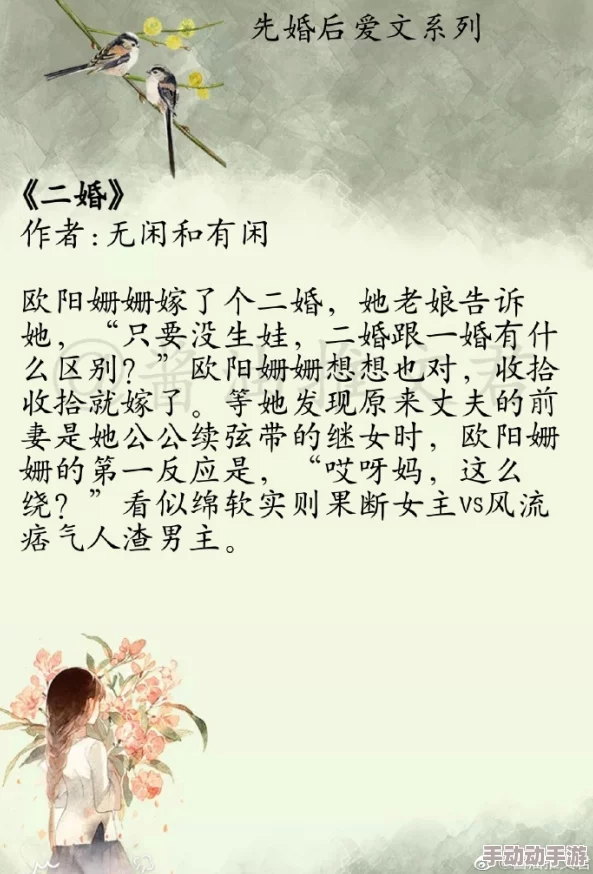 先婚后爱文系列
《二婚》
作者:无闲和有闲
欧阳姗姗嫁了个二婚，她老娘告诉
她，“只要没生娃，二婚跟一婚有什
么区别？”欧阳姗姗想想也对，收拾
收拾就嫁了。等她发现原来丈夫的前
妻是她公公续弦带的继女时，欧阳姗
姗的第一反应是，“哎呀妈，这么
绕？”看似绵软实则果断女主vs风流
痞气人渣男主。
手动动手游